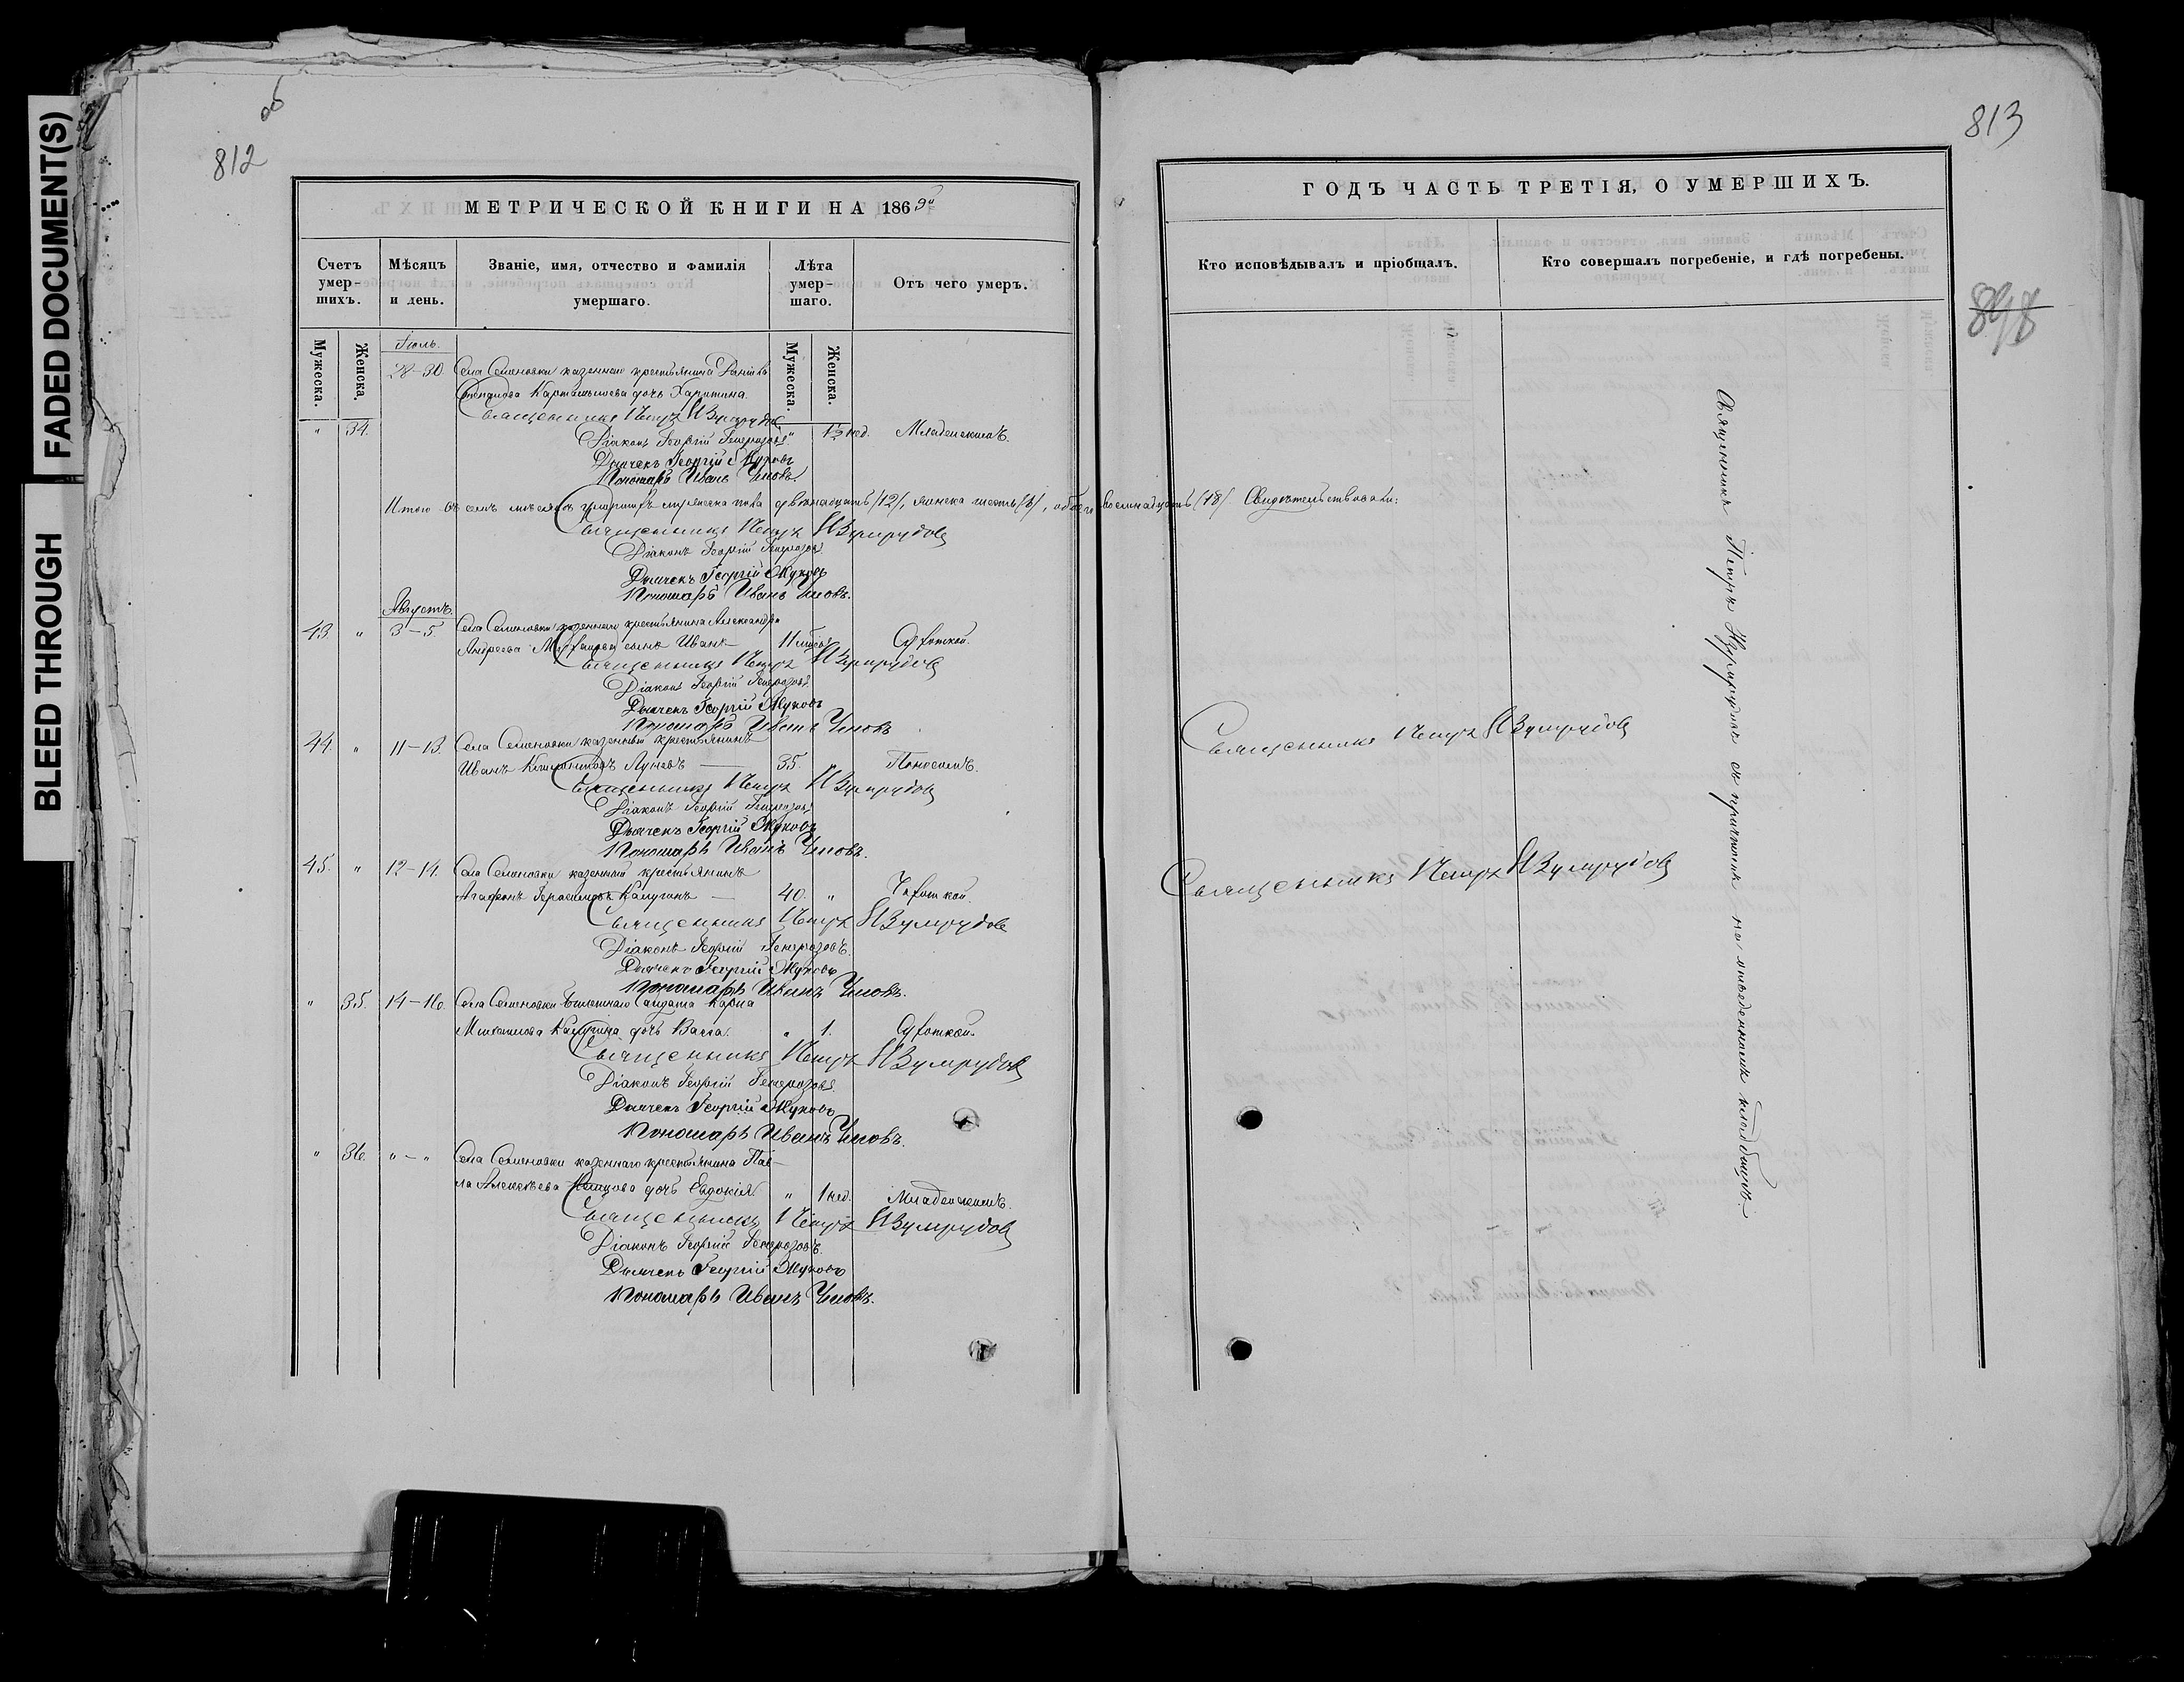 FADED DOCUMENT(S)
BLEED THROUGH
об
812
МЕТРИЧЕСКОЙ КНИГИ НА 1869й
Счетъ умер-шихъ.
Мѣсяцъ и день.
Званіе, имя, отчество и фамилія умершаго.
Лѣта умер-шаго.
Отъ чего умеръ.
Мужеска.
Женска.
Мужеска.
Женска.
Іюль.
28-30. Села Семеновки казеннаго крестьянина
Степанова Карташова дочь Харитина.
Священникъ Петръ Изумрудовъ
" 34. 1½ нед. Младенскимъ.
Діаконъ Георгій Генерозовъ
Дьячекъ Георгій Жуковъ
Пономарь Иванъ Умовъ.
Итого въ семъ мѣсяцѣ умершихъ мужеска пола двѣнадцать /12/, женска шесть /6/, обоего восемнадцать /18/. Свидѣтельствовали:
Священникъ Петръ Изумрудовъ
Діаконъ Георгій Генерозовъ
Дьячекъ Георгій Жуковъ
Пономарь Иванъ Умовъ.
Августъ.
43. " 3-5. Села Семеновки казеннаго крестьянина Александра
Андреева сынъ Иванъ 11 Чахоткой.
Священникъ Петръ Изумрудовъ
Діаконъ Георгій Генерозовъ
Дьячекъ Георгій Жуковъ
Пономарь Иванъ Умовъ
44. " 11-13. Села Семеновки казенный крестьянинъ
Иванъ Луневъ — 35. Поносомъ.
Священникъ Петръ Изумрудовъ
Діаконъ Георгій Генерозовъ
Дьячекъ Георгій Жуковъ
Пономарь Иванъ Умовъ.
45. " 12-14. Села Семеновки казенный крестьянинъ
Агафонъ Герасимовъ Калугинъ — 40. " Чахоткой.
Священникъ Петръ Изумрудовъ
Діаконъ Георгій Генерозовъ
Дьячекъ Георгій Жуковъ
Пономарь Иванъ Умовъ.
" 35. 14-16. Села Семеновки билетнаго солдата Карпа
Михайлова Калугина дочь Васса. " 1. Чахоткой.
Священникъ Петръ Изумрудовъ
Діаконъ Георгій Генерозовъ
Дьячекъ Георгій Жуковъ
Пономарь Иванъ Умовъ.
" 36. "-" Села Семеновки казеннаго крестьянина Пав-
ла Алексѣева дочь Евдокія. " 1 нед. Младенскимъ.
Священникъ Петръ Изумрудовъ
Діаконъ Георгій Генерозовъ
Дьячекъ Георгій Жуковъ
Пономарь Иванъ Умовъ.
813
ГОДЪ ЧАСТЬ ТРЕТІЯ, О УМЕРШИХЪ.
Кто исповѣдывалъ и пріобщалъ.
Кто совершалъ погребеніе, и гдѣ погребены.
Священникъ Петръ Изумрудовъ
Священникъ Петръ Изумрудовъ
Священникъ Петръ Изумрудовъ съ причтомъ на отведенномъ кладбищѣ.